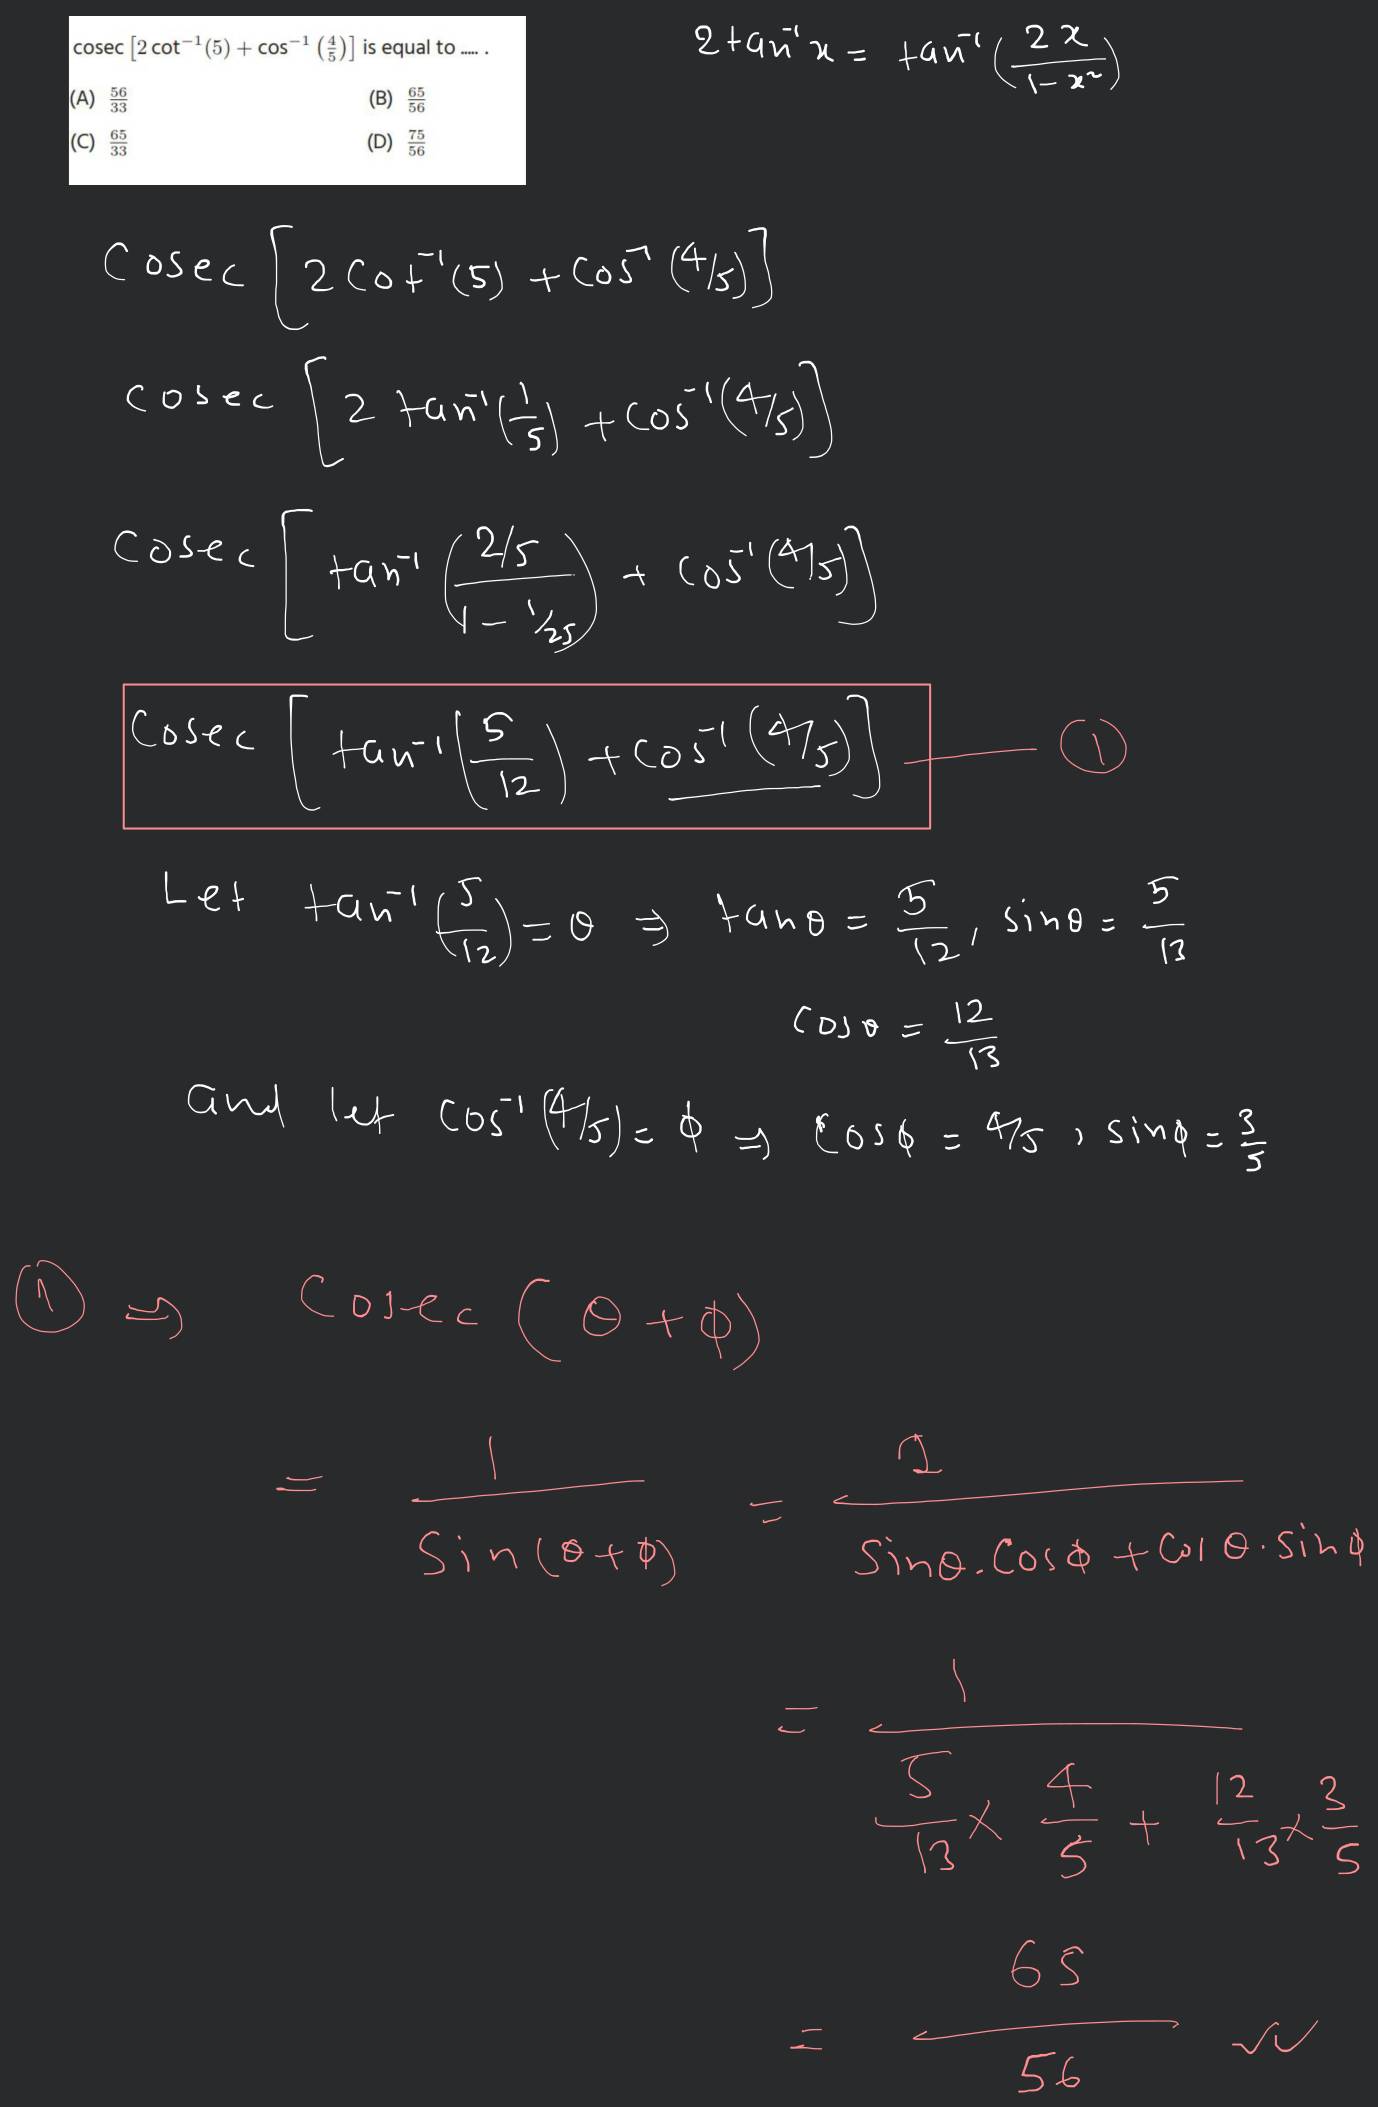 cosec [2 cot⁻¹(5) + cos⁻¹ (4/5)] is equal to ..... .
(A) 56/33 (B) 65/56
(C) 65/33 (D) 75/56
2tan⁻¹x = tan⁻¹(2x/(1-x²))
Cosec [2Cot⁻¹(5) + Cos⁻¹(4/5)]
Cosec [2 tan⁻¹(1/5) + Cos⁻¹(4/5)]
Cosec [tan⁻¹((2/5)/(1-1/25)) + Cos⁻¹(4/5)]
Cosec [tan⁻¹(5/12) + Cos⁻¹(4/5)] — ①
Let tan⁻¹(5/12) = θ ⇒ tanθ = 5/12, sinθ = 5/13
Cosθ = 12/13
and let Cos⁻¹(4/5) = ϕ ⇒ Cosϕ = 4/5, sinϕ = 3/5
① ⇒ Cosec (θ+ϕ)
= 1/Sin(θ+ϕ) = 1/(Sinθ.Cosϕ + Cosθ.Sinϕ)
= 1/(5/13 × 4/5 + 12/13 × 3/5)
= 65/56